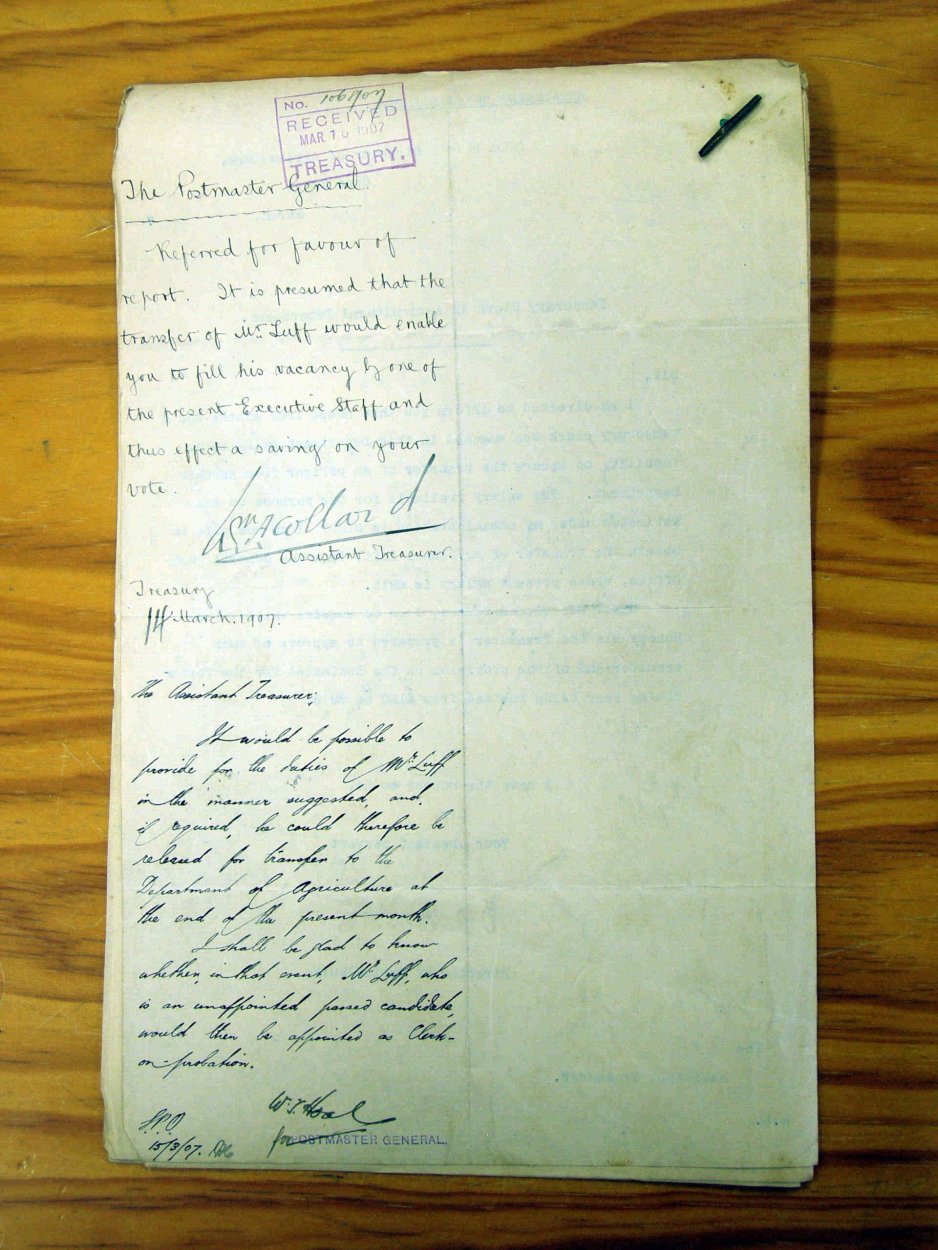 No. 1068/07
RECEIVED
MAR 1 1907
TREASURY.
The Postmaster General.
Referred for favour of
report. It is presumed that the
transfer of Mr. Luff would enable
you to fill his vacancy by one of
the present Executive Staff and
thus effect a saving on your
vote.
Collard
Assistant Treasurer.
Treasury
14 March, 1907.
The Assistant Treasurer;
It would be possible to
provide for the duties of Mr. Luff
in the manner suggested, and,
if required, he could therefore be
released for transfer to the
Department of Agriculture at
the end of the present month.
I shall be glad to know
whether, in that event, Mr. Luff, who
is an unappointed passed candidate,
would then be appointed as Clerk-
on-probation.
W.T. Hoal
for POSTMASTER GENERAL.
G.P.O.
15/3/07.